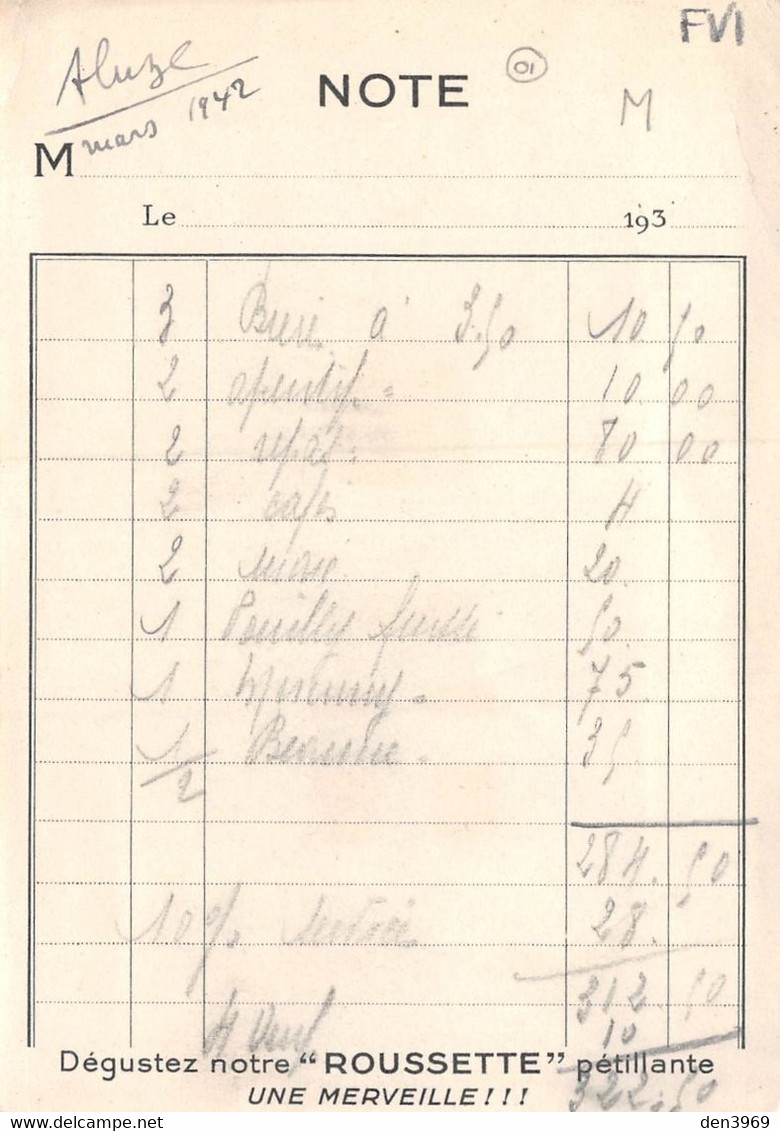 FVI
Aluze
mars 1942
NOTE
01
M
M
Le 193
3 Bière à 3.50 10 50
2 apéritif = 10.00
2 repas = 80 00
2 cafés 4
2 20.
1 Pouilly fuissé 50.
1 75
1/2 Beaune - 35
284.50
10% service 28.
312.50
4 10
Dégustez notre "ROUSSETTE" pétillante
322.50
UNE MERVEILLE!!!
den3969